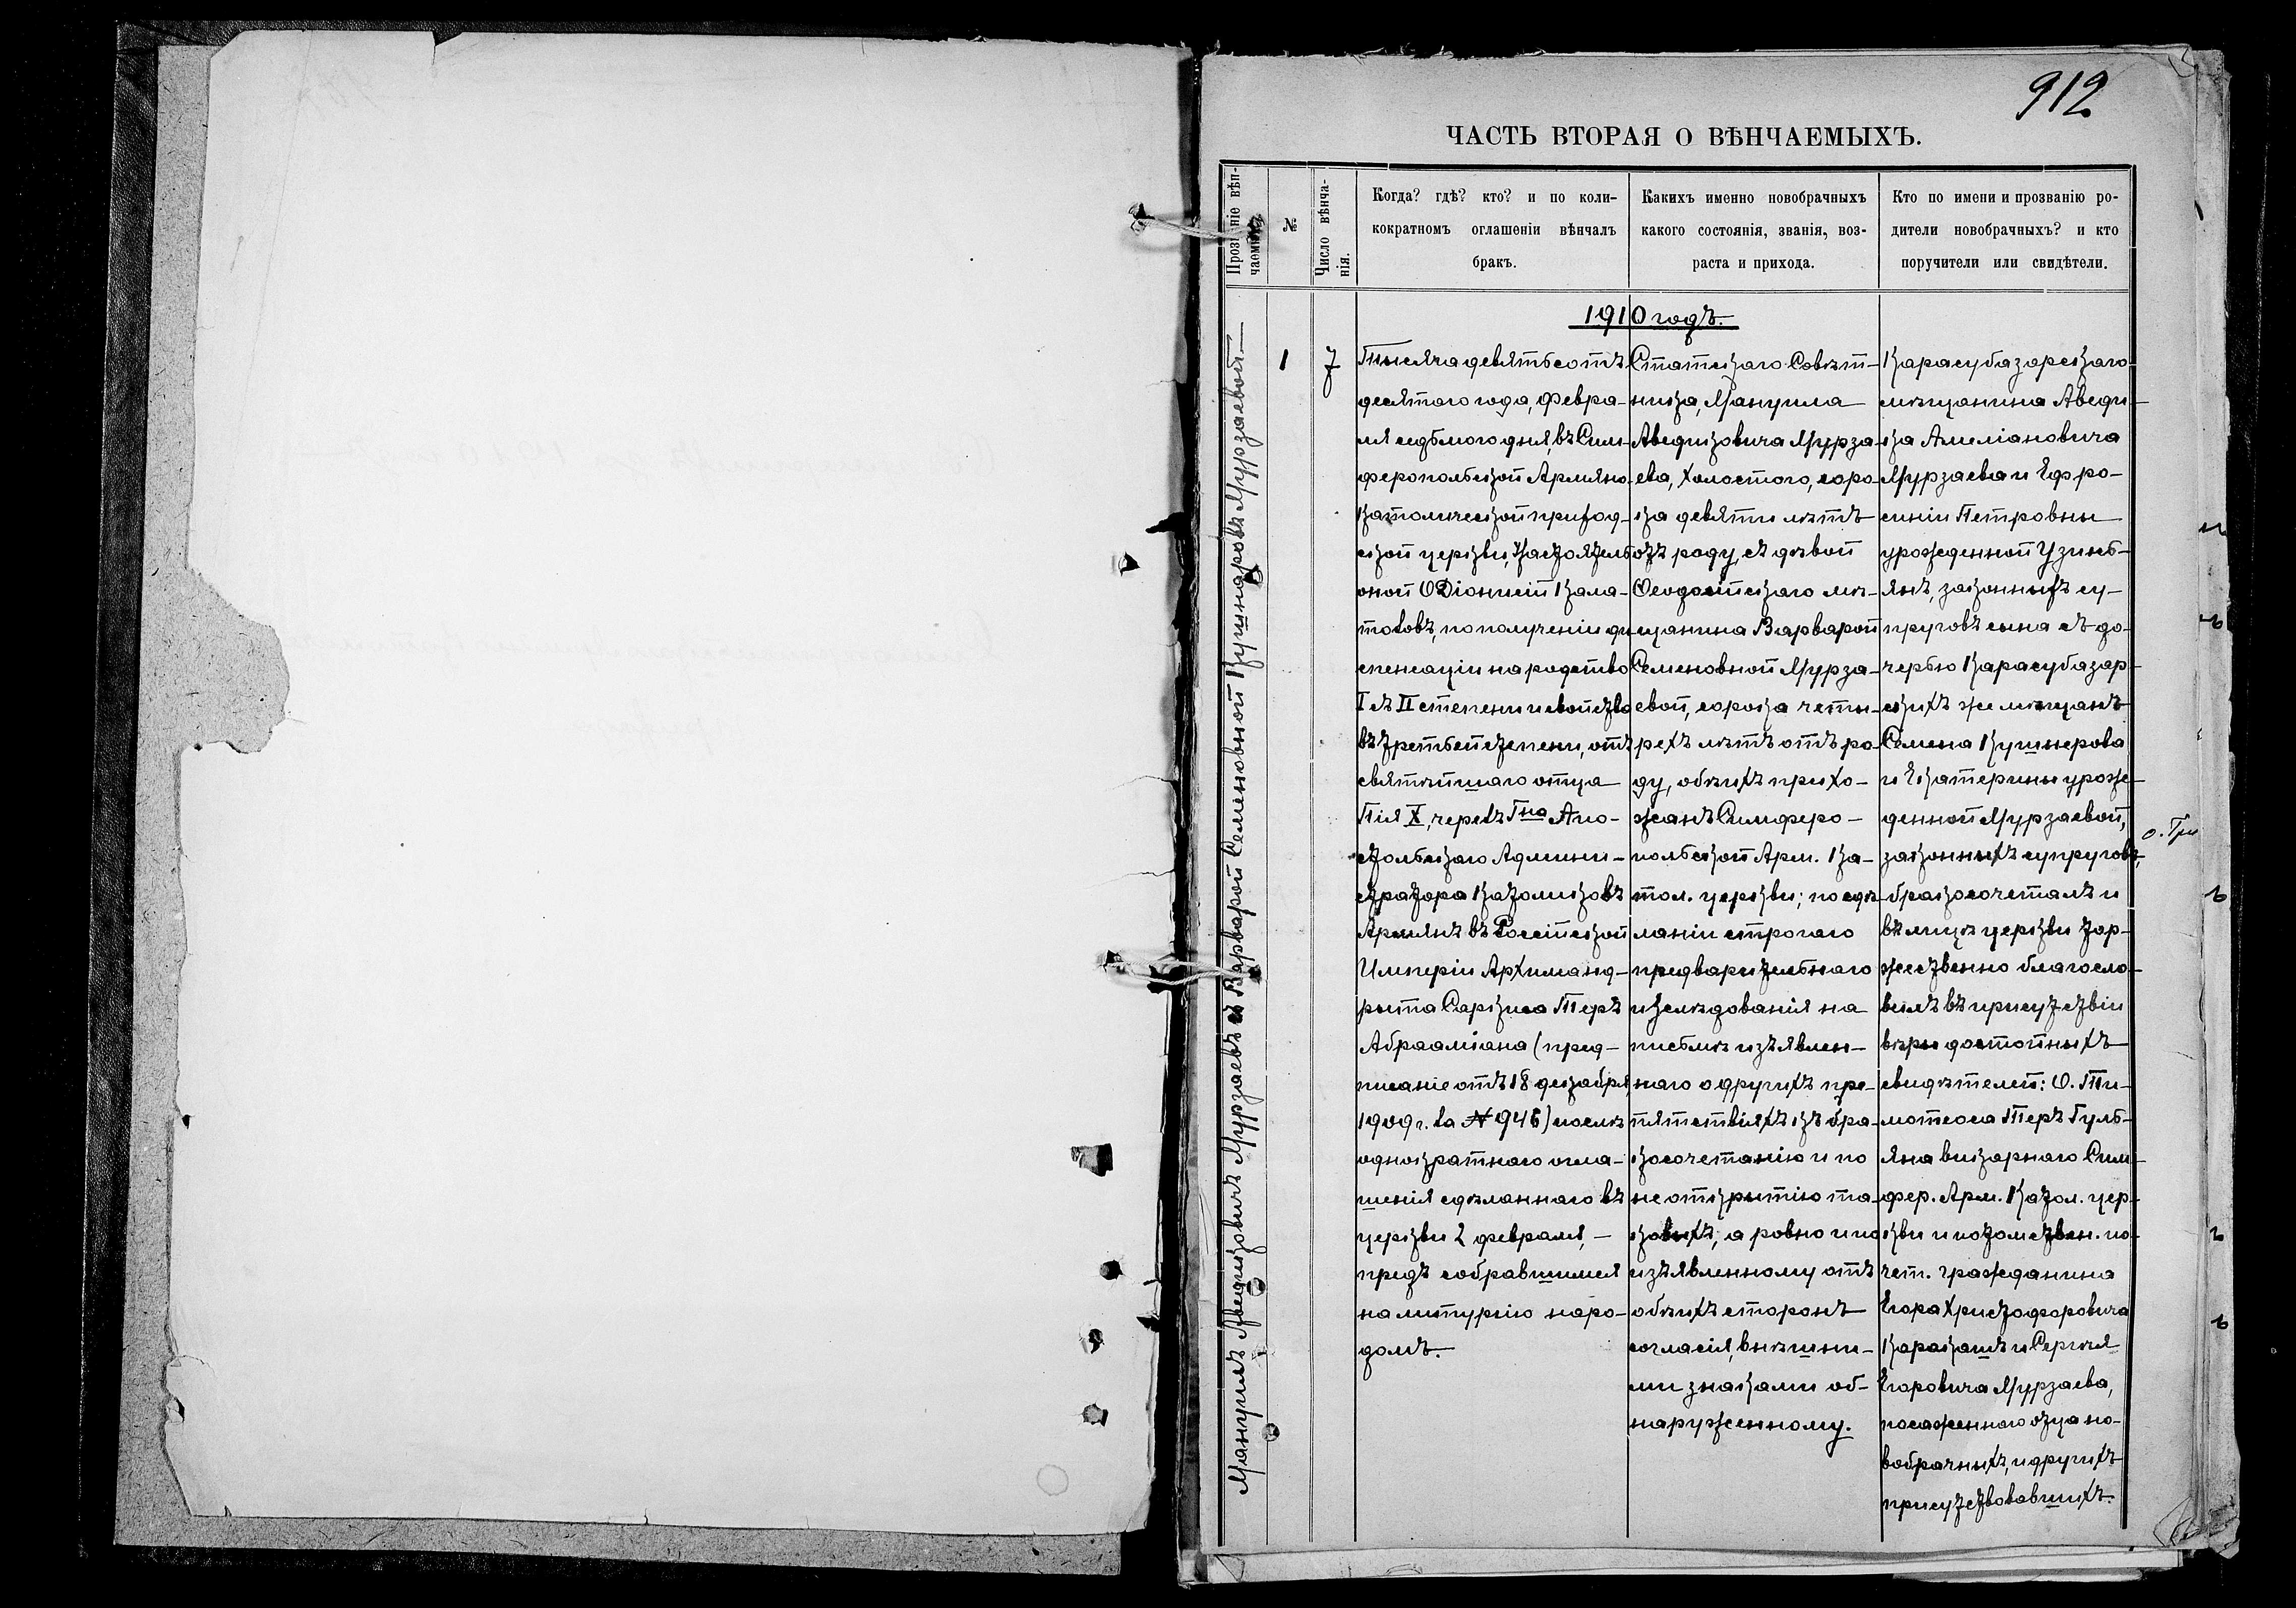 912
ЧАСТЬ ВТОРАЯ О ВѢНЧАЕМЫХЪ.
Прозваніе вѣн-
чаемыхъ
№
Число вѣнча-
нія.
Когда? гдѣ? кто? и по коли-
кократномъ оглашеніи вѣнчалъ
бракъ.
Какихъ именно новобрачныхъ
какого состоянія, званія, воз-
раста и прихода.
Кто по имени и прозванію ро-
дители новобрачныхъ? и кто
поручители или свидѣтели.
1910 годъ.
Мануилъ Аведиковичъ Мурзаевъ съ Варварой Семеновной Кушнаровъ Мурзаевой
1
7
Тысяча девятьсотъ
десятого года, Февра-
ля седьмого дня, въ Сим-
феропольской Армяно-
католической приход-
ской церкви, Настоятель
оной О Діонисій Кала-
тосовъ, по полученіи ди-
спенсаціи на родство
I съ II степени и свойство
въ третьей степени, отъ
святѣйшаго отца
Пія X, черезъ Гна Апо-
стольскаго Админи-
стратора Католиковъ
Армянъ въ Россійской
Имперіи Архиманд-
рыта Саркиса Теръ
Абрааміана (пред-
писаніе отъ 18 декабря
1909 г. за № 946) послѣ
однократнаго огла-
шенія сдѣланнаго въ
церкви 2 февраля, —
предъ собравшимся
на литургію наро-
домъ.
Статскаго Совѣт-
ника, Мануила
Аведиковича Мурза-
ева, холостого, соро-
ка девяти лѣтъ
отъ роду, съ дѣвой
Ѳеодосійскаго мѣ-
щанина Варварой
Семеновной Мурза-
евой, сорока четы-
рехъ лѣтъ отъ ро-
ду, обѣихъ прихо-
жанъ Симферо-
польской Арм. Ка-
тол. церкви; по сдѣ-
ланіи строгаго
предварительнаго
изслѣдованія на
письмѣ изъявлен-
наго о другихъ пре-
пятствіяхъ къ бра-
косочетанію и по
не открытію та-
ковыхъ, а ровно и по
изъявленному отъ
обѣихъ сторонъ
согласія, внѣшни-
ми знаками об-
наруженному.
Карасубазарскаго
мѣщанина Аведи-
ка Амеліановича
Мурзаева и Ефро-
синіи Петровны
урожденной Узунъ-
янъ, законныхъ су-
пруговъ сына съ до-
черью Карасубазар-
скихъ же мѣщанъ
Семена Кушнерова
и Екатерины урож-
денной Мурзаевой,
законныхъ супруговъ,
бракосочеталъ и
въ лицѣ церкви тор-
жественно благосло-
вилъ въ присутствіи
вѣры достойныхъ
свидѣтелей: О. Ти-
мотеоса Теръ Гуль-
яна викарнаго Сим-
фер. Арм. Катол. цер-
кви и потомствен. по-
чет. гражданина
Егора Христофоровича
Каракашъ и Сергѣя
Егоровича Мурзаева,
посаженного отца но-
вобрачныхъ, и другихъ
присутствовавшихъ.